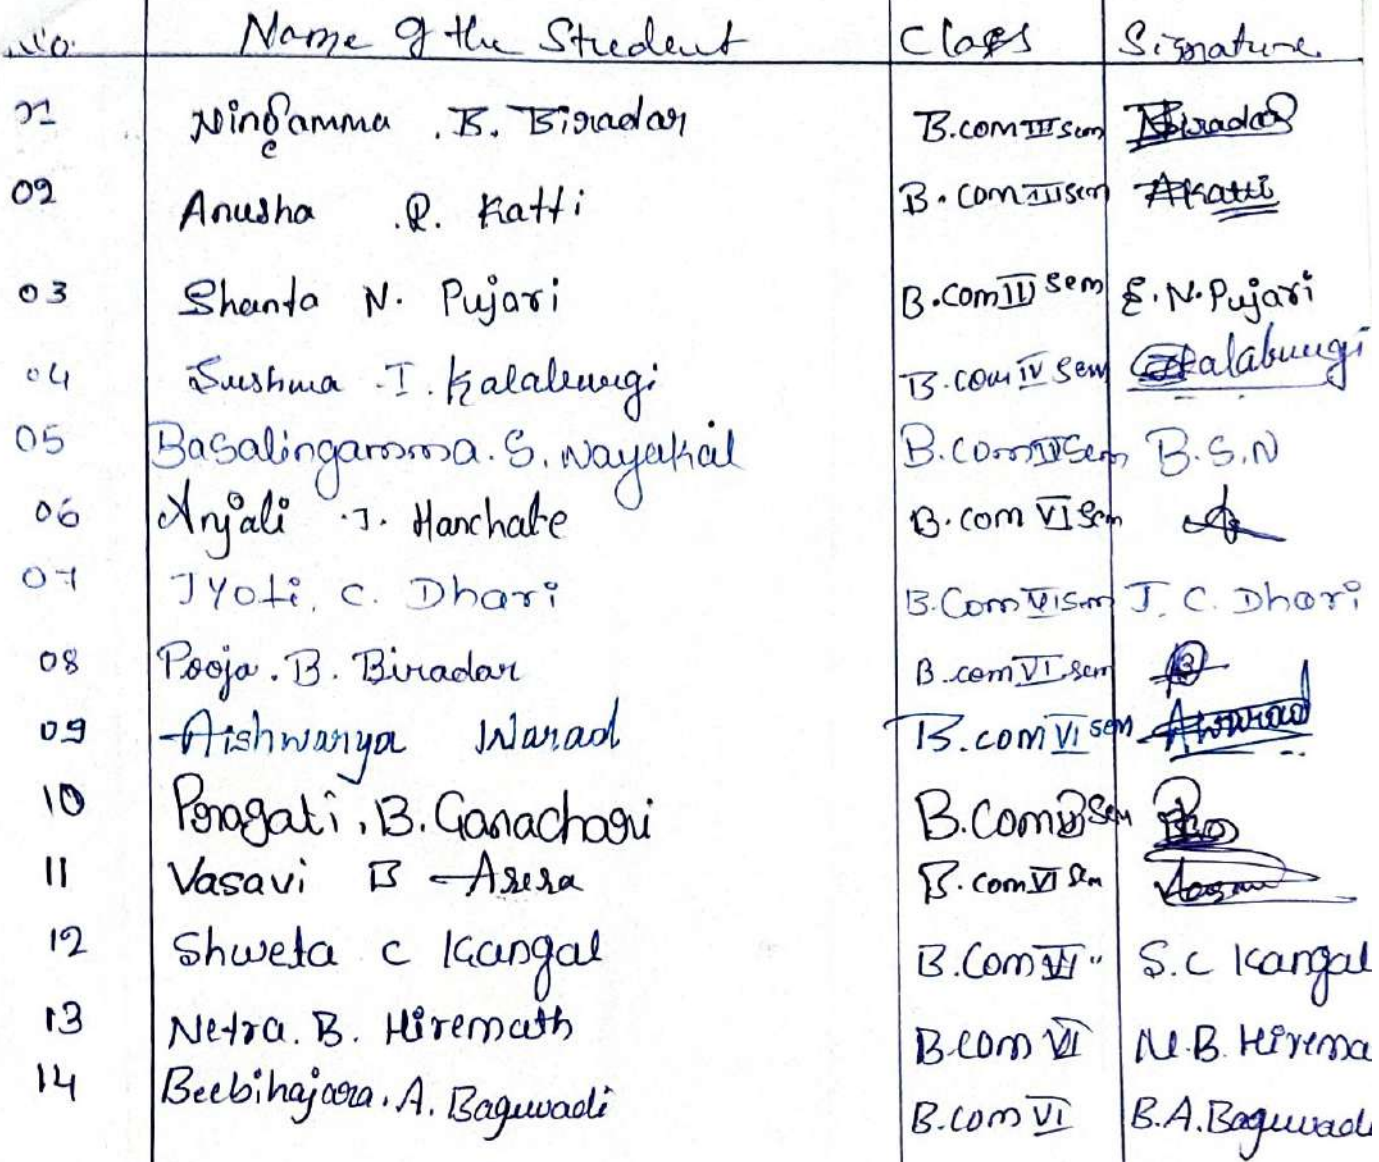 No. Name of the Student Class Signature
01 Ningamma . B. Biradar B.com III sem Biradar
02 Anusha .R. Katti B. com III sem AKatti
03 Shanta N. Pujari B.com II sem S.N.Pujari
04 Sushma .I. Kalaburgi B.com IV sem Kalaburgi
05 Basalingamma. S. Nayakal B.com Sem B.S.N
06 Anjali .J. Hanchate B.com VI Sem
07 Jyoti. C. Dhari B.Com VI sem J. C. Dhari
08 Pooja. B. Biradar B.com VI sem
09 Aishwarya Warad B.com VI sem AWarad
10 Pragati. B. Ganachari B.Com Sem
11 Vasavi B Arera B.com VI sem
12 Shweta C Kangal B.Com VI " S.C Kangal
13 Netra. B. Hiremath B.com VI N.B. Hirema
14 Beebihajara. A. Baguwadi B.com VI B.A.Baguwad